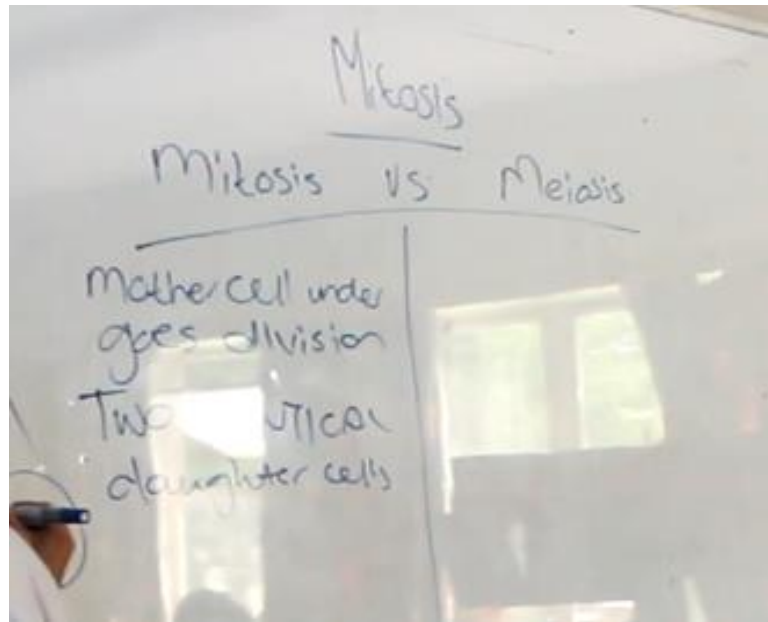 Mitosis
Mitosis vs Meiosis
Mother cell under
goes division
Two
daughter cells